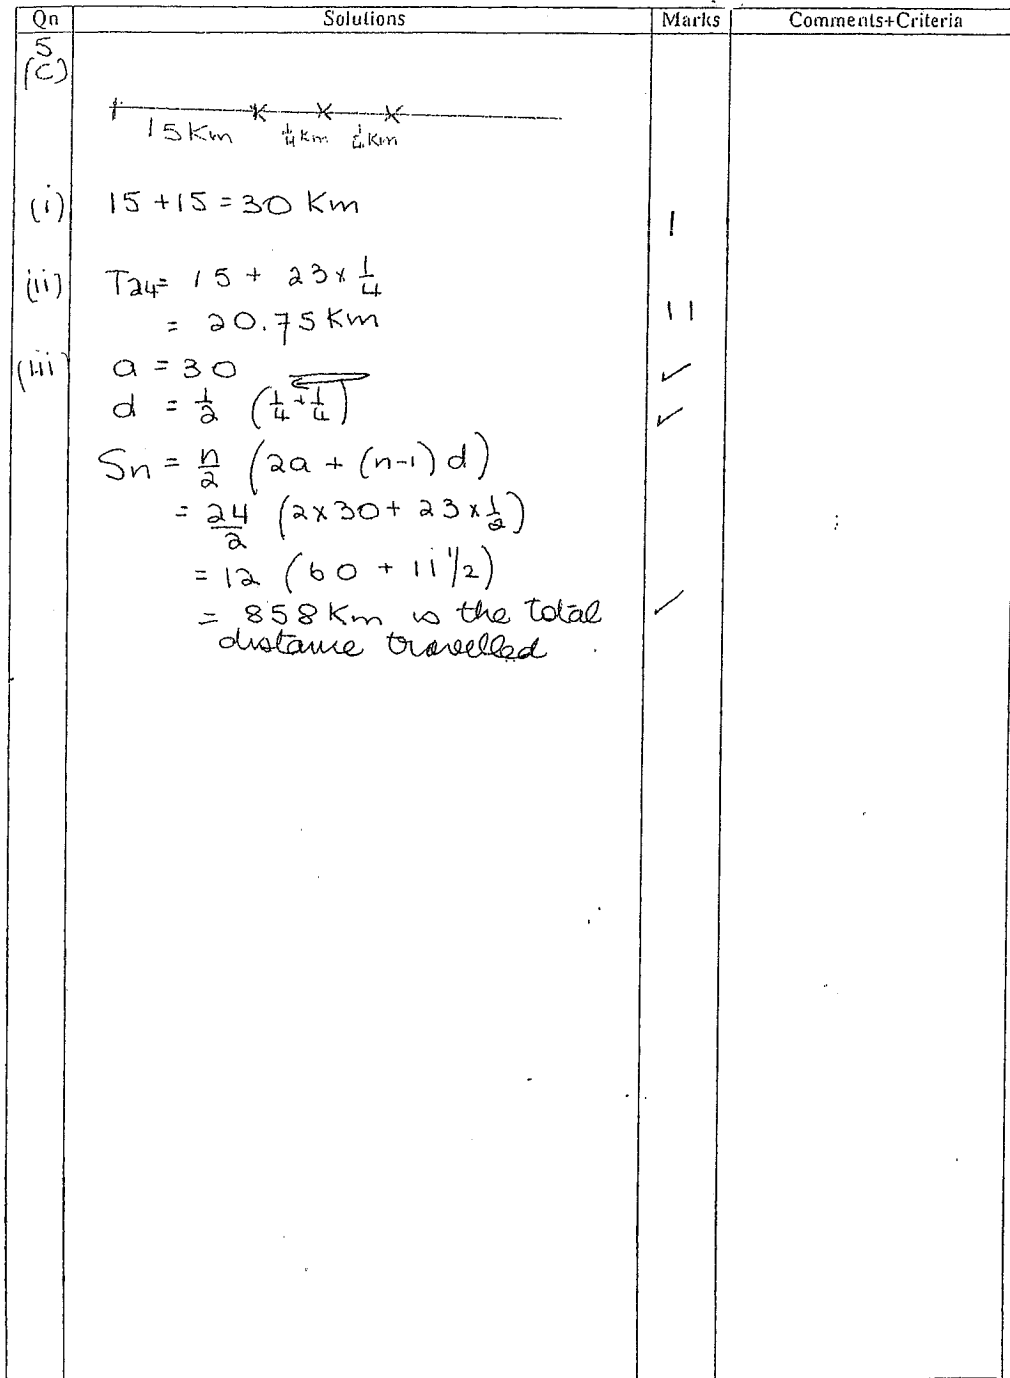 Qn Solutions Marks Comments+Criteria
5
(C)
15 Km 1/4 Km 1/4 Km
(i) 15 + 15 = 30 Km 1
(ii) T24 = 15 + 23 x 1/4
= 20.75 Km 11
(iii) a = 30 ✓
d = 1/2 (1/4 + 1/4) ✓
Sn = n/2 (2a + (n-1) d)
= 24/2 (2x30 + 23 x 1/2)
= 12 (60 + 11 1/2)
= 858 Km is the total ✓
distance travelled.